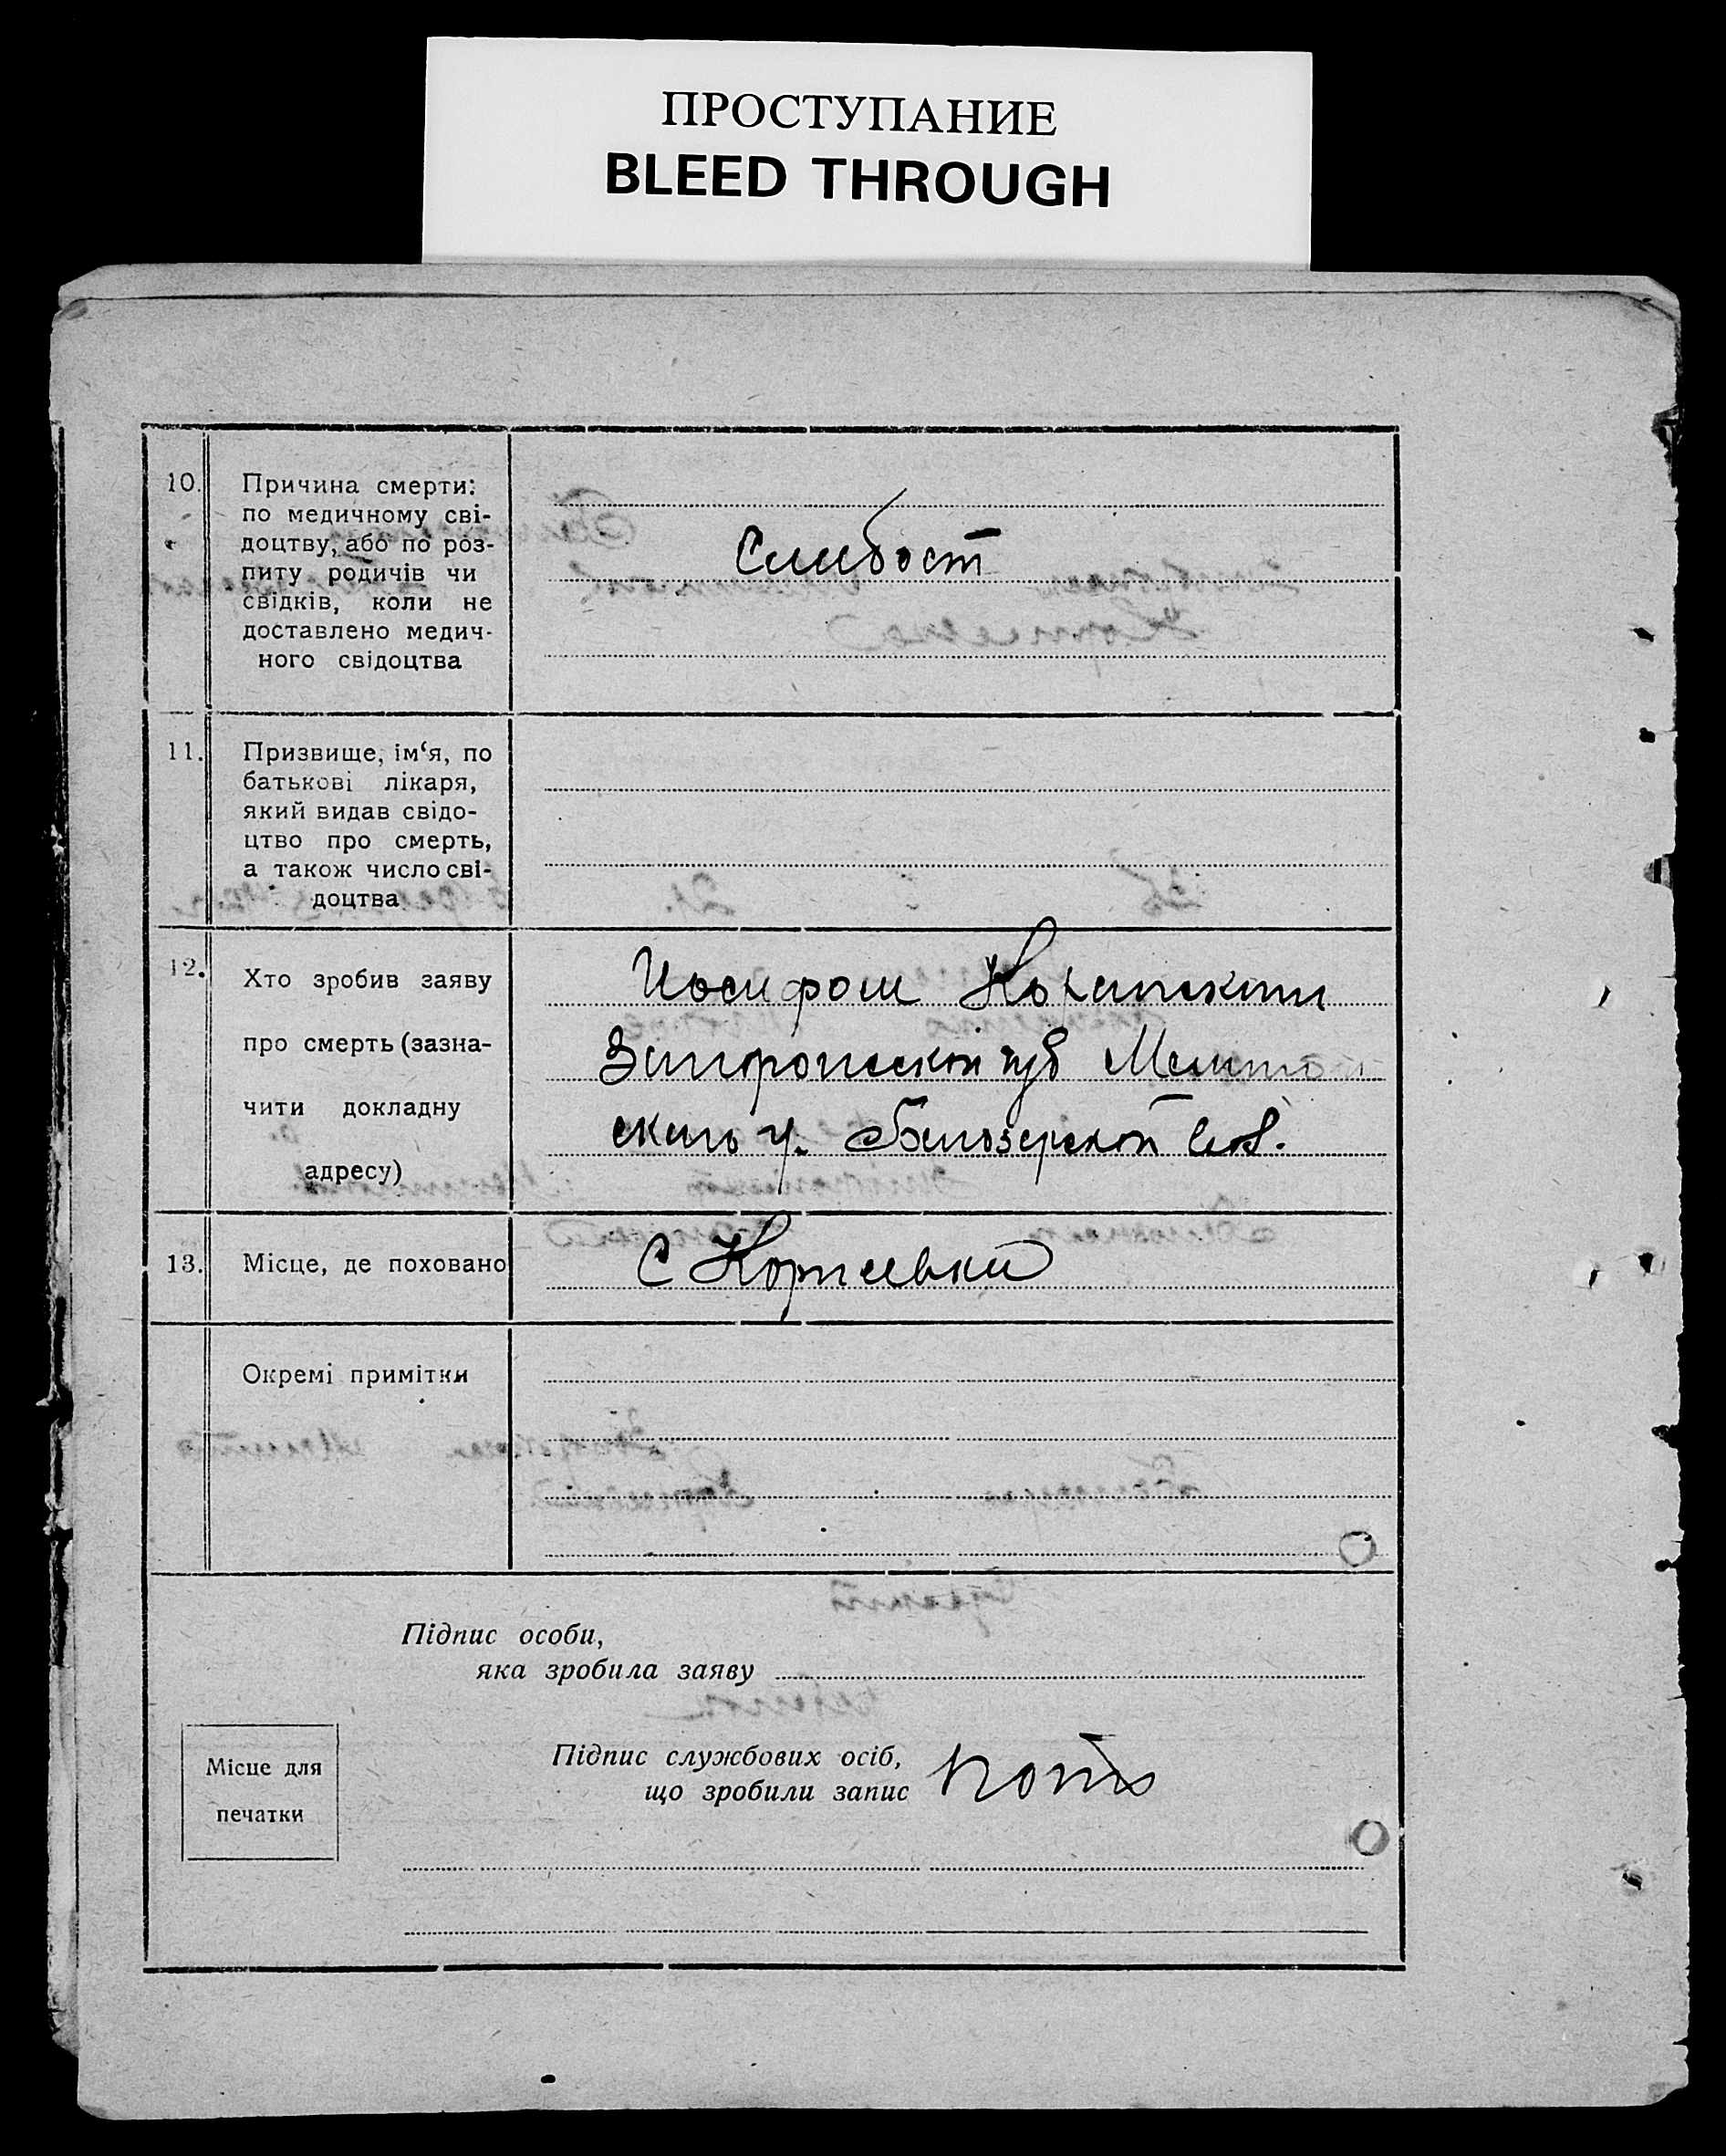 ПРОСТУПАНИЕ
BLEED THROUGH
10. Причина смерти:
по медичному сві-
доцтву, або по роз-
питу родичів чи
свідків, коли не
доставлено медич-
ного свідоцтва
Слабост
11. Призвище, ім‘я, по
батькові лікаря,
який видав свідо-
цтво про смерть,
а також число сві-
доцтва
12. Хто зробив заяву
про смерть (зазна-
чити докладну
адресу)
Иосифом
Запорожской губ Мелитоп
ского у. Белозерской вол.
13. Місце, де поховано
С Корнеевка
Окремі примітки
Підпис особи,
яка зробила заяву
Місце для
печатки
Підпис службових осіб,
що зробили запис